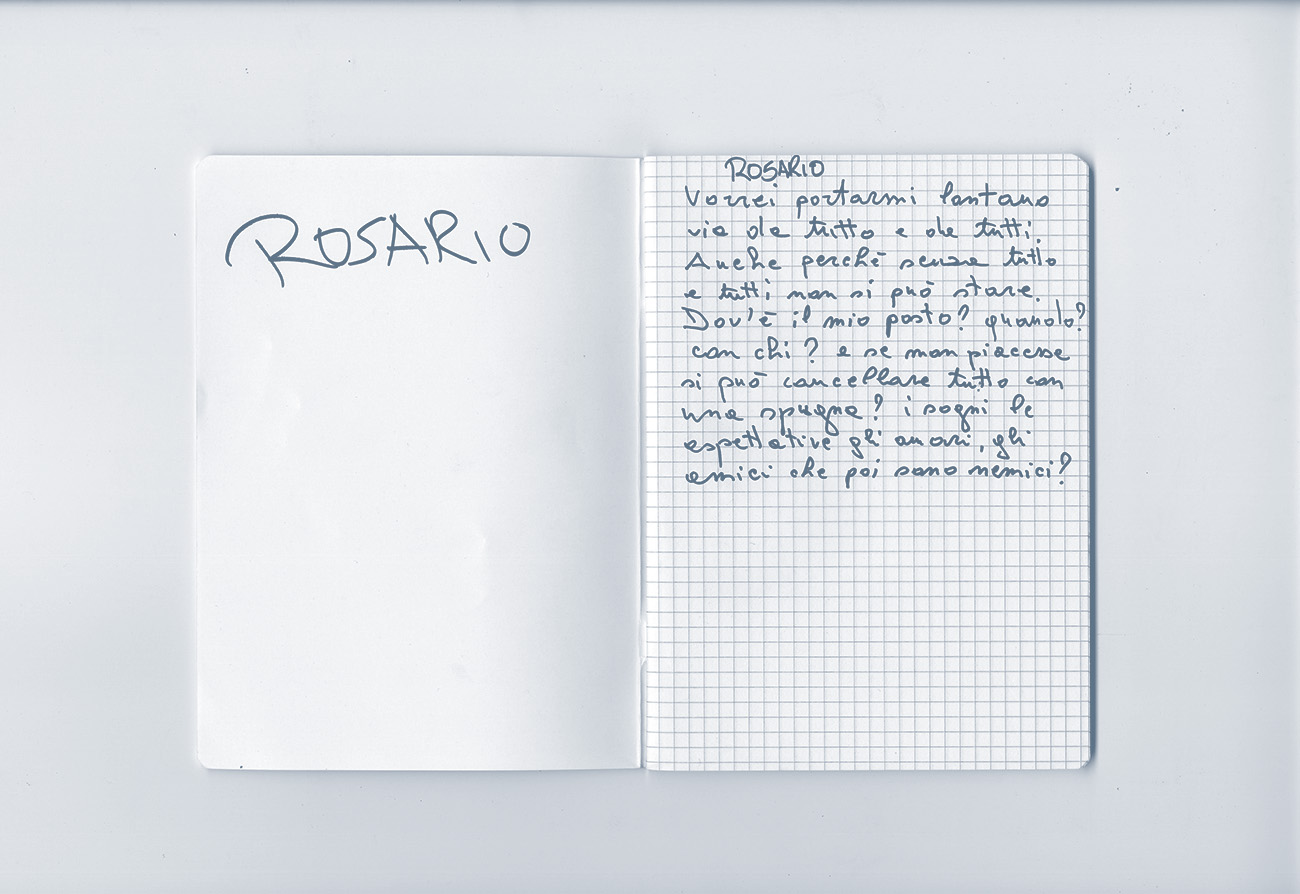 ROSARIO
ROSARIO
Vorrei portarmi lontano
via da tutto e da tutti.
Anche perchè senza tutto
e tutti non si può stare.
Dov'è il mio posto? quando?
con chi? e se non piacesse
si può cancellare tutto con
una spugna? i sogni le
aspettative gli amori, gli
amici che poi sono nemici?